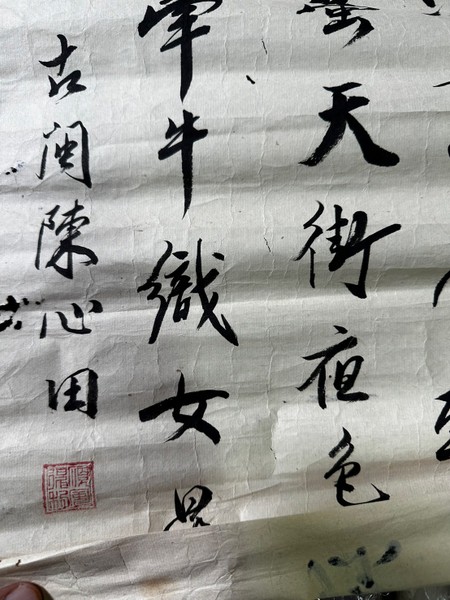 螢天街夜色
牽牛織女
古閩陳心田